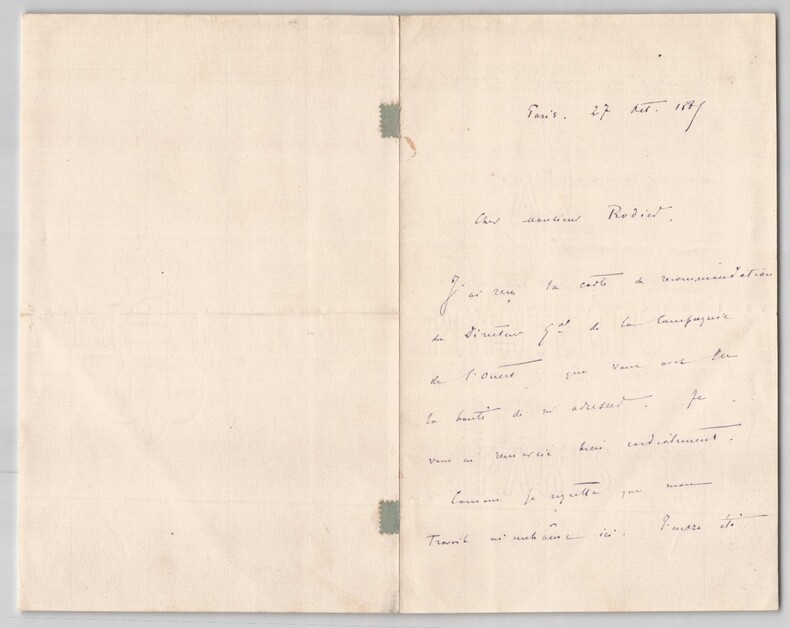 Paris. 27 Oct. 188
Cher Monsieur Rodier.
J'ai reçu la carte de recommandation
du Directeur Gal de la Compagnie
de l'Ouest que vous avez eu
la bonté de m'adresser. Je
vous en remercie bien cordialement.
Comme je regrette que mon
Travail m'enchaîne ici. J'aurais été